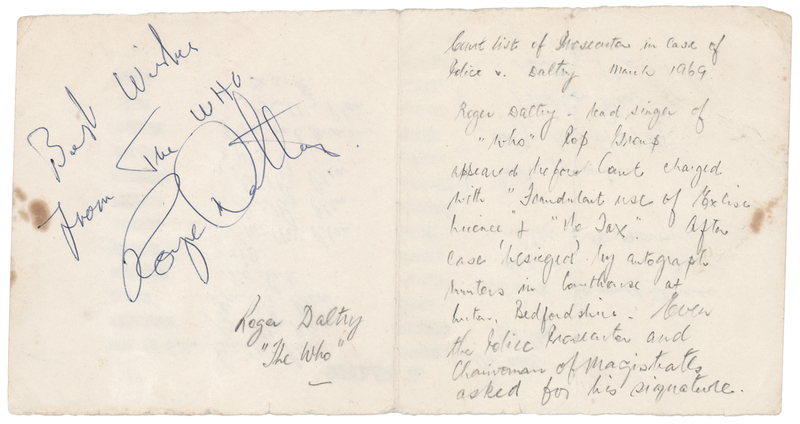 Best Wishes
From The WHO.
Roger Daltrey
Roger Daltry
"The Who"
Court list of Prosecutor in case of
Police v. Daltry March 1969
Roger Daltry - lead singer of
"Who" Pop Group
appeared before Court charged
with "Fraudulent use of Excise
Licence" & "No Tax". After
case 'besieged' by autograph
hunters in Courthouse at
Luton, Bedfordshire - Even
the Police Prosecutor and
Chairwoman of Magistrates
asked for his signature.